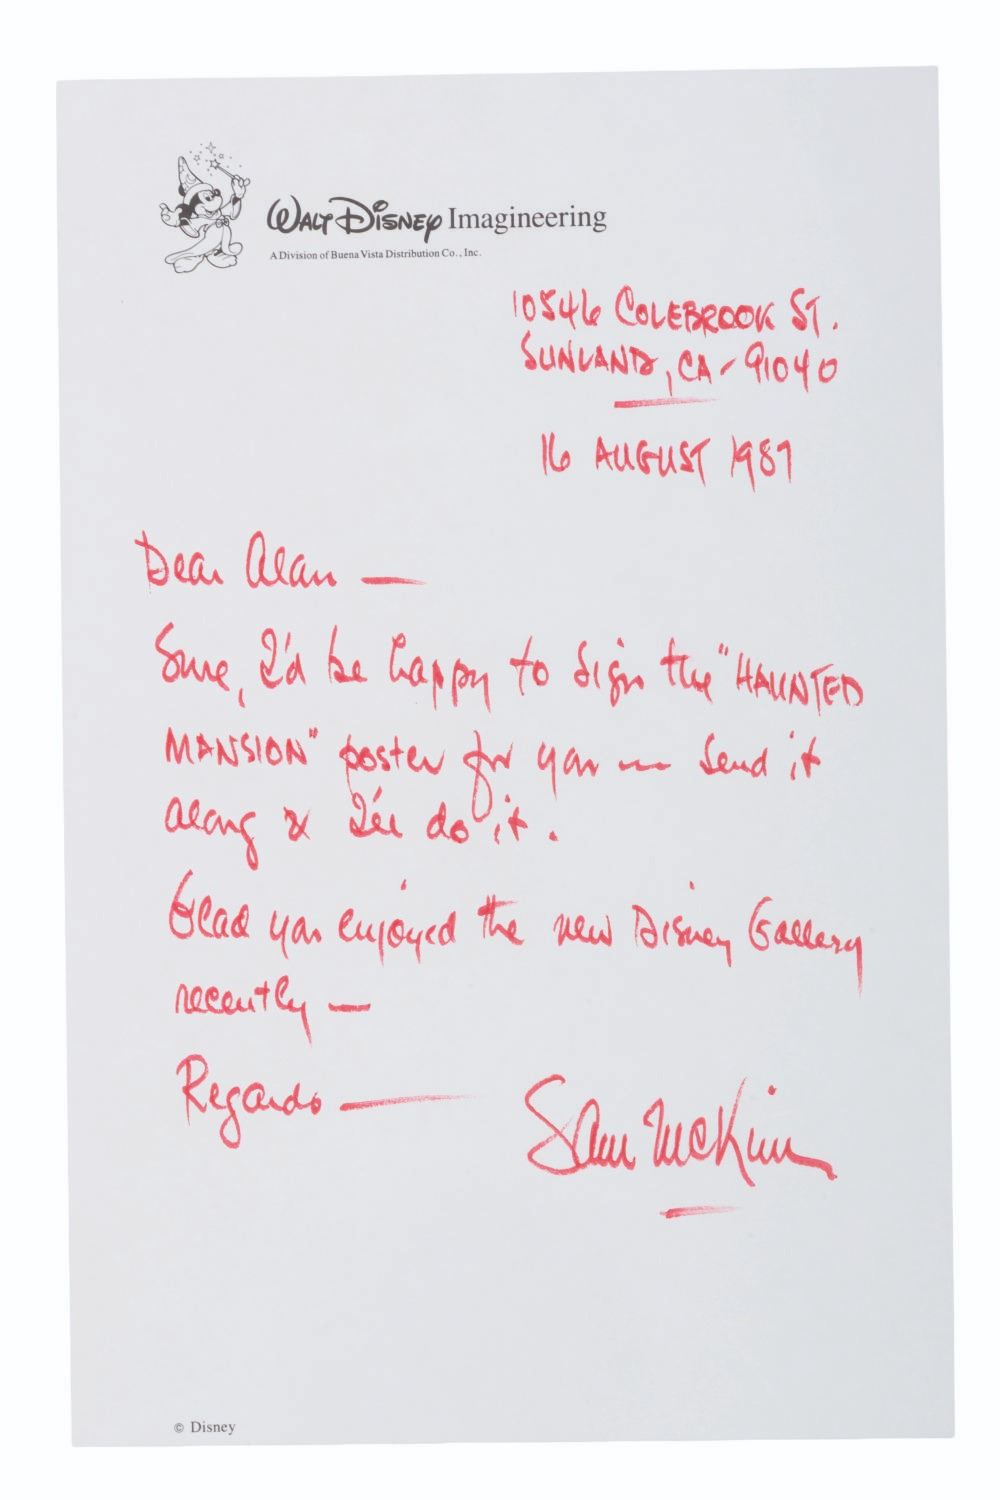 Walt Disney Imagineering
A Division of Buena Vista Distribution Co., Inc.
10546 COLEBROOK ST.
SUNLAND, CA - 91040
16 AUGUST 1987
Dear Alan —
Sure, I'd be happy to sign the "HAUNTED
MANSION" poster for you — send it
along & I'll do it.
Glad you enjoyed the new Disney Gallery
recently —
Regards —
Sam McKim
© Disney